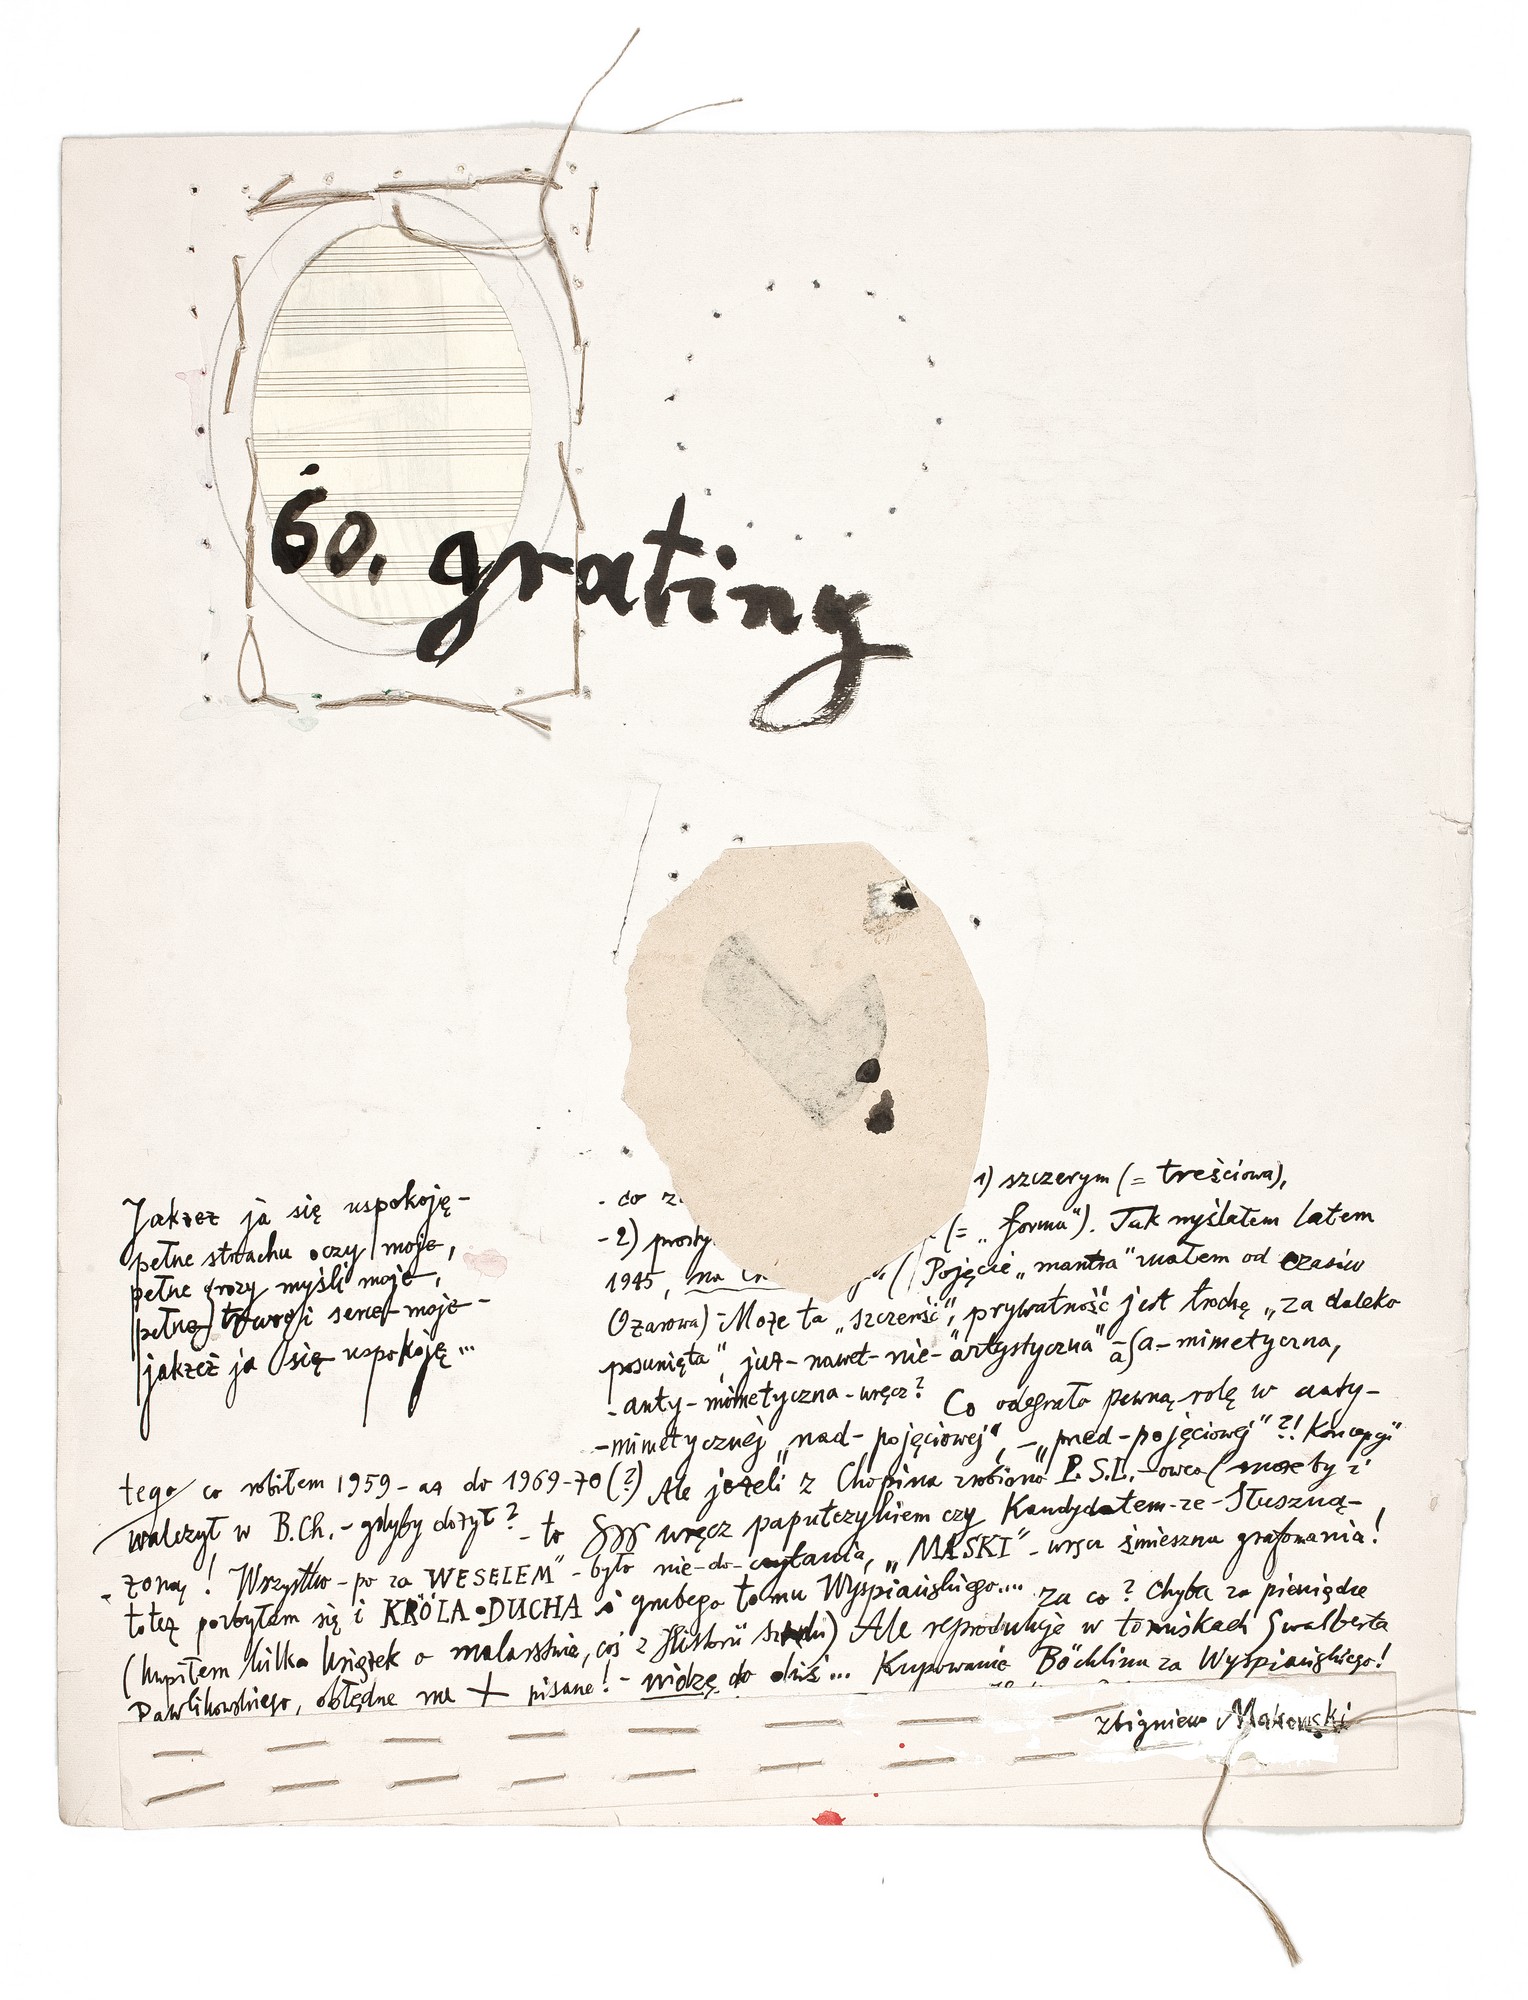 60, grating
Jakżeż ja się uspokoję –
pełne strachu oczy moje,
pełne grozy myśli moje,
pełne trwogi serce moje –
jakżeż ja się uspokoję...
- do 1) szczerym (= treściowa),
- 2) (= „forma"). Tak myślałem latem
1945, Pojęcie „mantra" miałem od czasów
(Ożarowa) – Może ta „szczerość", prywatność jest trochę „za daleko
posunięta", już – nawet – nie – "artystyczna" – (a – mimetyczna,
- anty – mimetyczna – wręcz? Co odegrało pewną rolę w anty –
– mimetycznej „nad – pojęciowej", – „pred – pojęciowej" ?! Koncepcji
tego co robiłem 1959 – aż do 1969–70 (?) Ale jeżeli z Chopina zrobiono P.S.L. – owca (może by i
walczył w B.Ch. – gdyby dożył? – to wręcz paputczykiem czy Kandydatem – ze – Słuszną –
- żoną! Wszystko – po za WESELEM" – było nie – do – czytania, „MASKI" – wręcz śmieszna grafomania!
toteż pozbyłem się i KRÓLA • DUCHA i grubego tomu Wyspiańskiego.... za co? Chyba za pieniądze
(kupiłem kilka książek o malarstwie, coś z Historii sztuki) Ale reprodukcje w tomiskach Gwalberta
Pawlikowskiego, obłędne na + pisane! – widzę do dziś... Kupowanie Böcklina za Wyspiańskiego!
Zbigniew Makowski